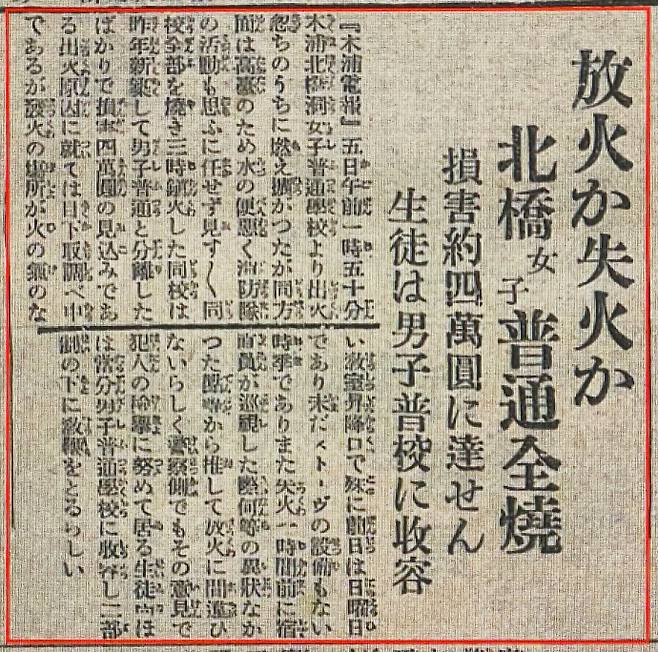 放火か失火か
北橋女子普通全燒
損害約四萬圓に達せん
生徒は男子普校に收容
『木浦電報』五日午前一時五十分
木浦北橋洞女子普通學校より出火
忽ちのうちに燃え擴がつたが同方
面は高臺のため水の便惡く消防隊
の活動も思ふに任せず見す〱同
校全部を燒き三時鎭火した同校は
昨年新築して男子普通と分離した
ばかりで損害四萬圓の見込みであ
る出火原因に就ては目下取調べ中
であるが發火の場所が火の氣のな
い教室昇降口で殊に前日は日曜日
であり未だストーヴの設備もない
時季でありまた失火一時間前に宿
直員が巡視した際何等の異狀なか
つた點等から推して放火に間違ひ
ないらしく警察側でもその意見で
犯人の檢擧に努めて居る生徒
は當分男子普通學校に收容し二部
制の下に教鞭をとるらしい